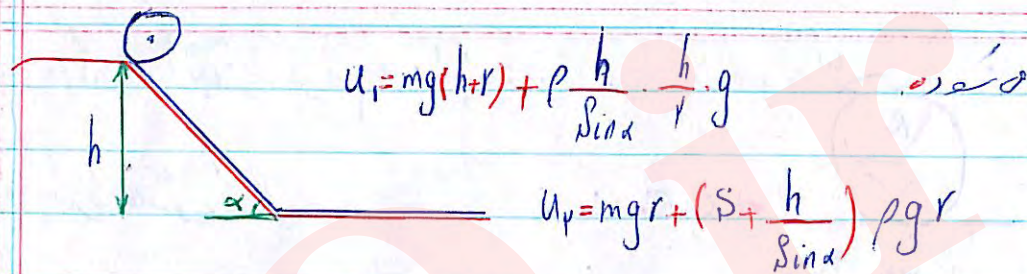 U₁ = mg(h+r) + ρ h/Sinα · h/۲ · g
h
α
U۲ = mgr + (S + h/Sinα) ρgr